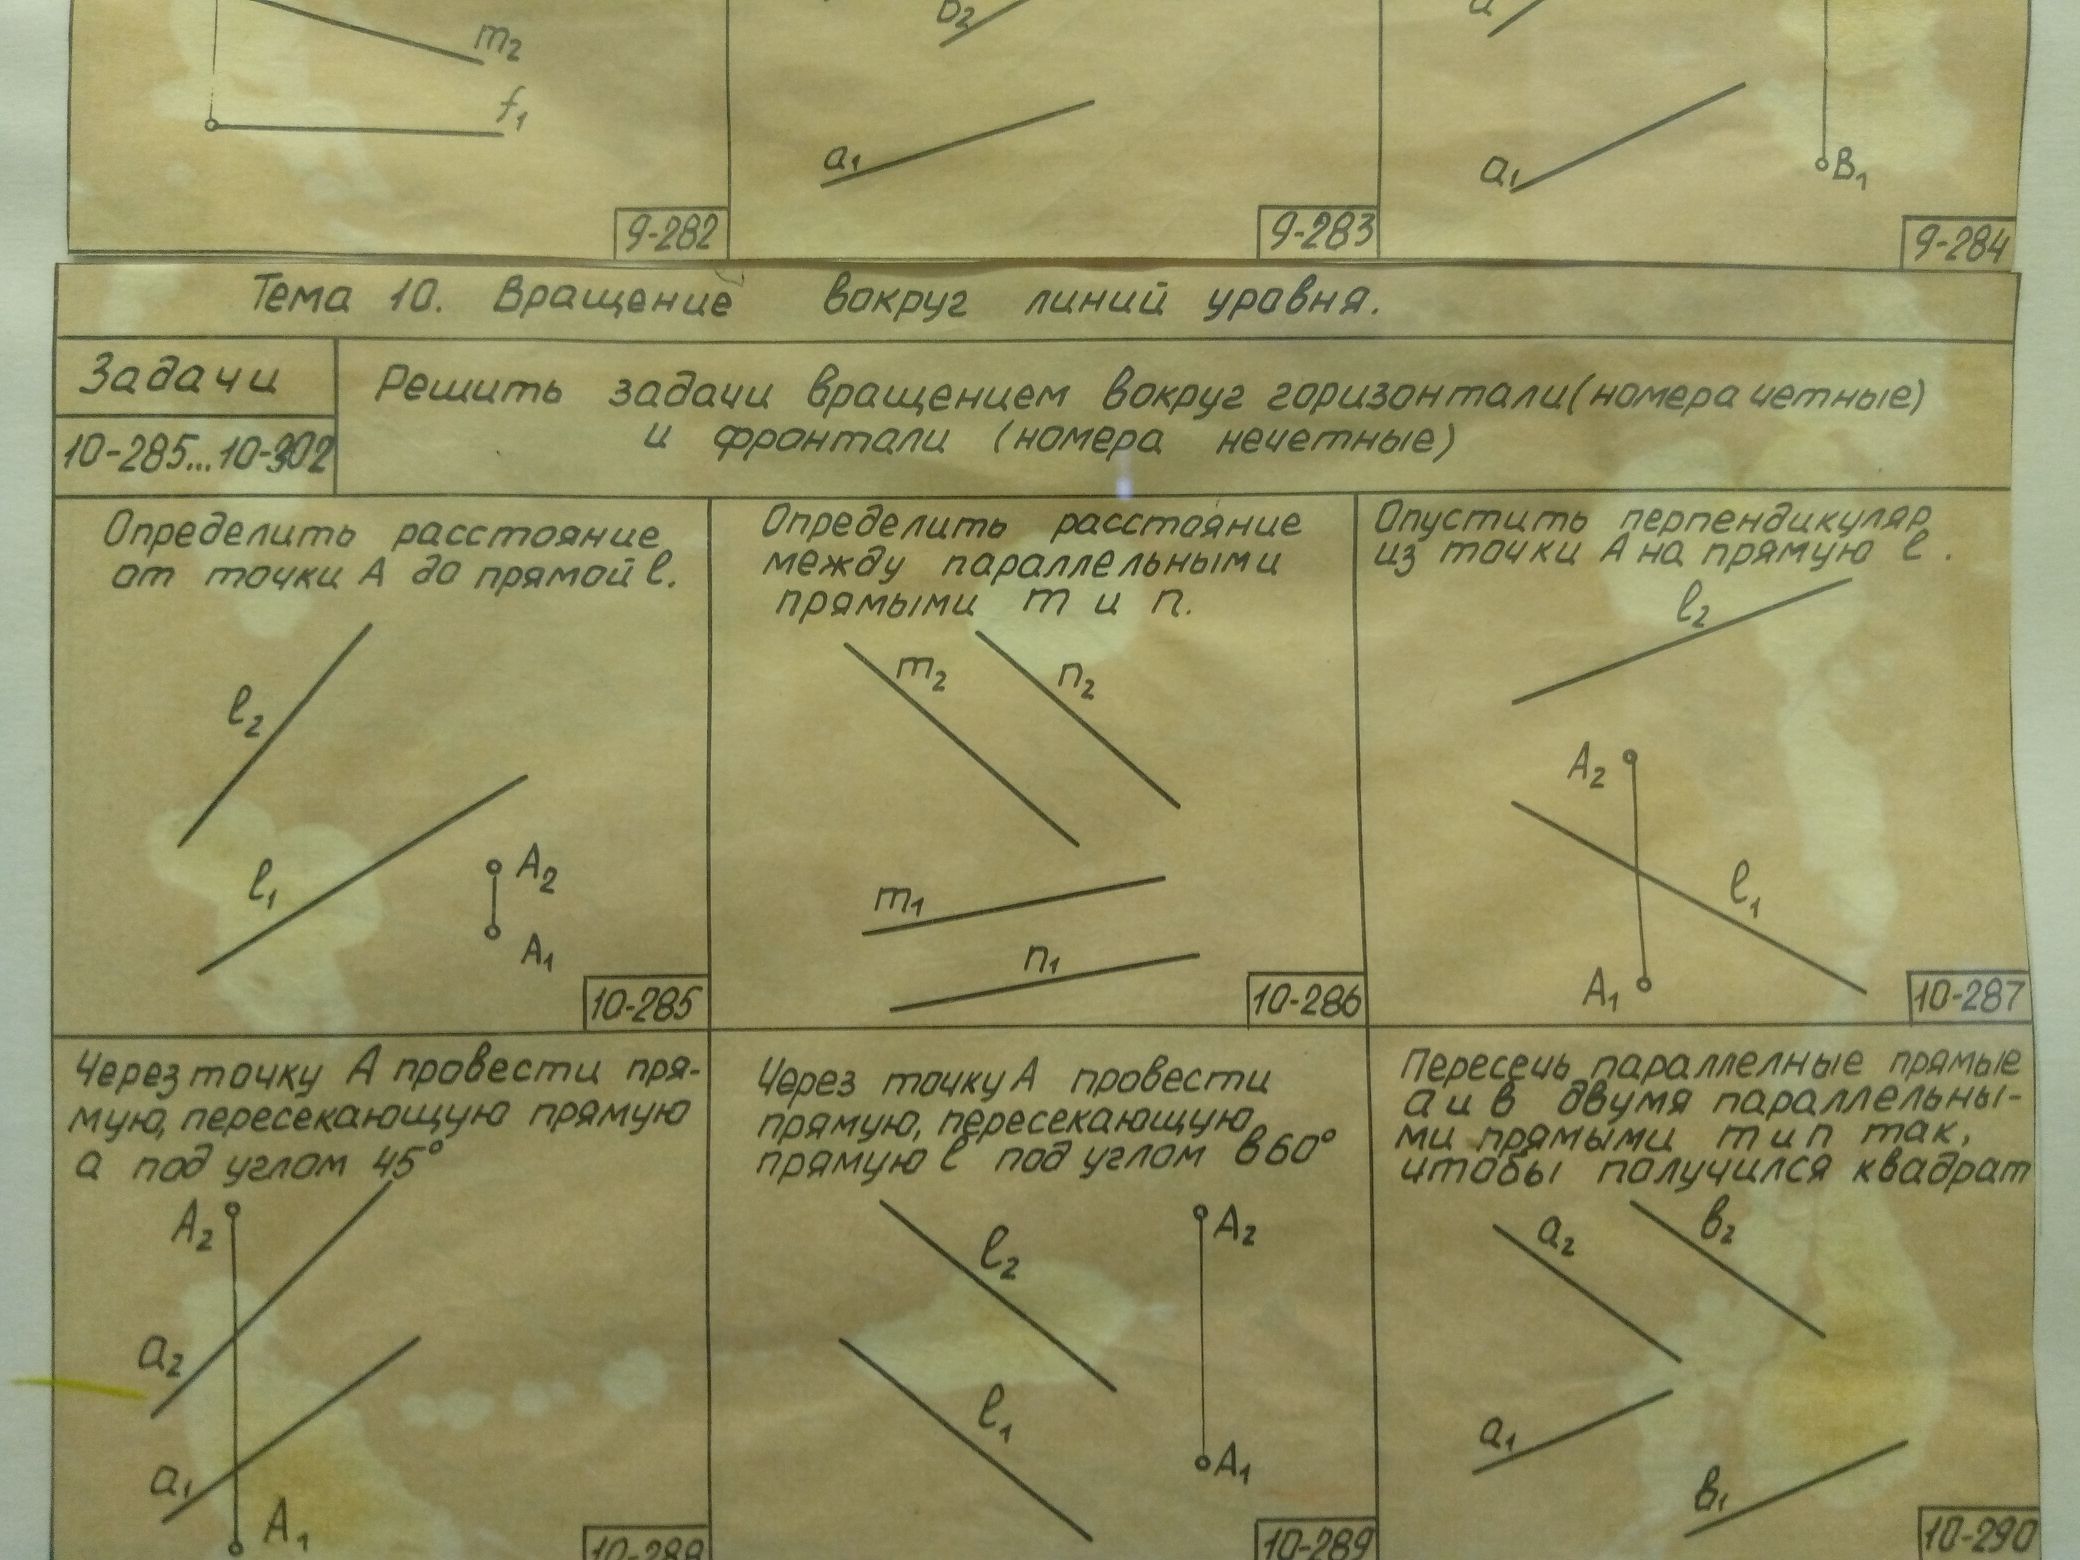 m₂
b₂
a
f₁
a₁
a₁
B₁
9-282
9-283
9-284
Тема 10. Вращение вокруг линий уровня.
Задачи
10-285...10-302
Решить задачи вращением вокруг горизонтали (номера четные)
и фронтали (номера нечетные)
Определить расстояние
от точки А до прямой ℓ.
ℓ₂
ℓ₁
A₂
A₁
10-285
Определить расстояние
между параллельными
прямыми m и n.
m₂
n₂
m₁
n₁
10-286
Опустить перпендикуляр
из точки А на прямую ℓ.
ℓ₂
A₂
ℓ₁
A₁
10-287
Через точку А провести пря-
мую, пересекающую прямую
a под углом 45°
A₂
a₂
a₁
A₁
10-288
Через точку А провести
прямую, пересекающую
прямую ℓ под углом в 60°
ℓ₂
A₂
ℓ₁
A₁
10-289
Пересечь параллелные прямые
а и в двумя параллельны-
ми прямыми m и n так,
чтобы получился квадрат
a₂
в₂
a₁
в₁
10-290